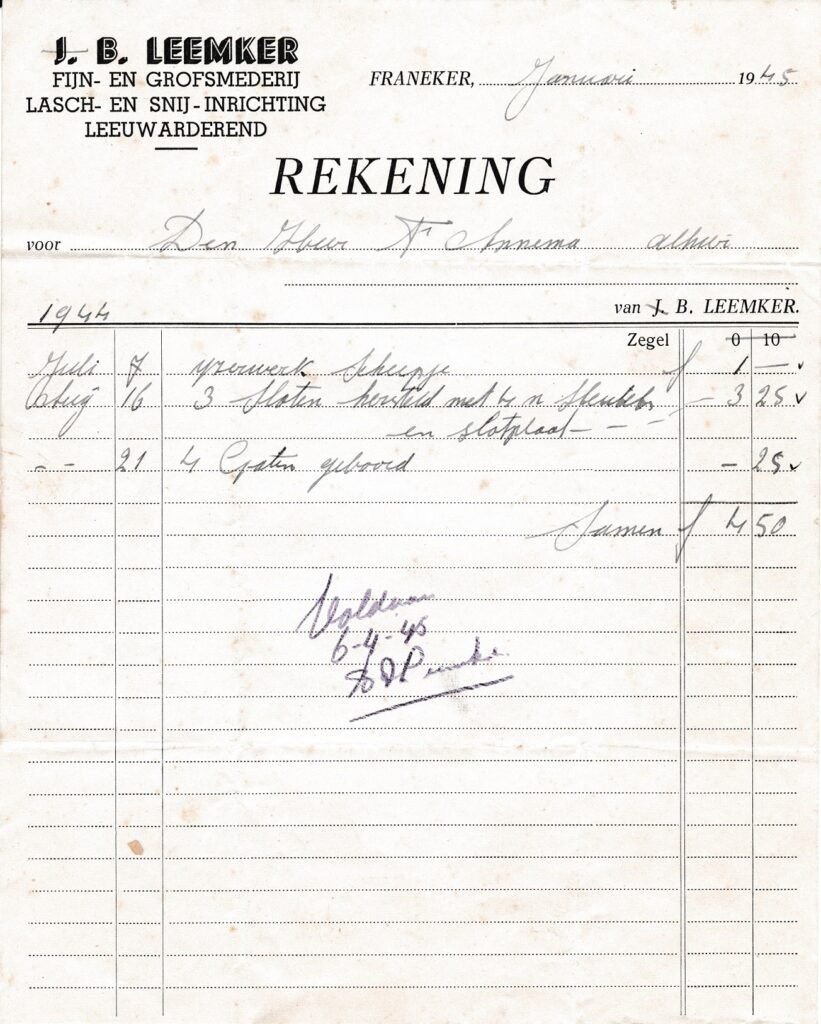 J. B. LEEMKER
FIJN- EN GROFSMEDERIJ
LASCH- EN SNIJ-INRICHTING
LEEUWARDEREND
FRANEKER, Januari 1945
REKENING
voor Den Heer Annema alhier
van J. B. LEEMKER.
1944
Zegel 0 10
Juli 7 yzerwerk Scheepje f 1 —
Aug 16 3 sloten hersteld met 4 n sleutels - 3 25
en slotplaat - - -
- - 21 4 gaten geboord - 25
Samen f 4 50
Voldaan
6-4-45